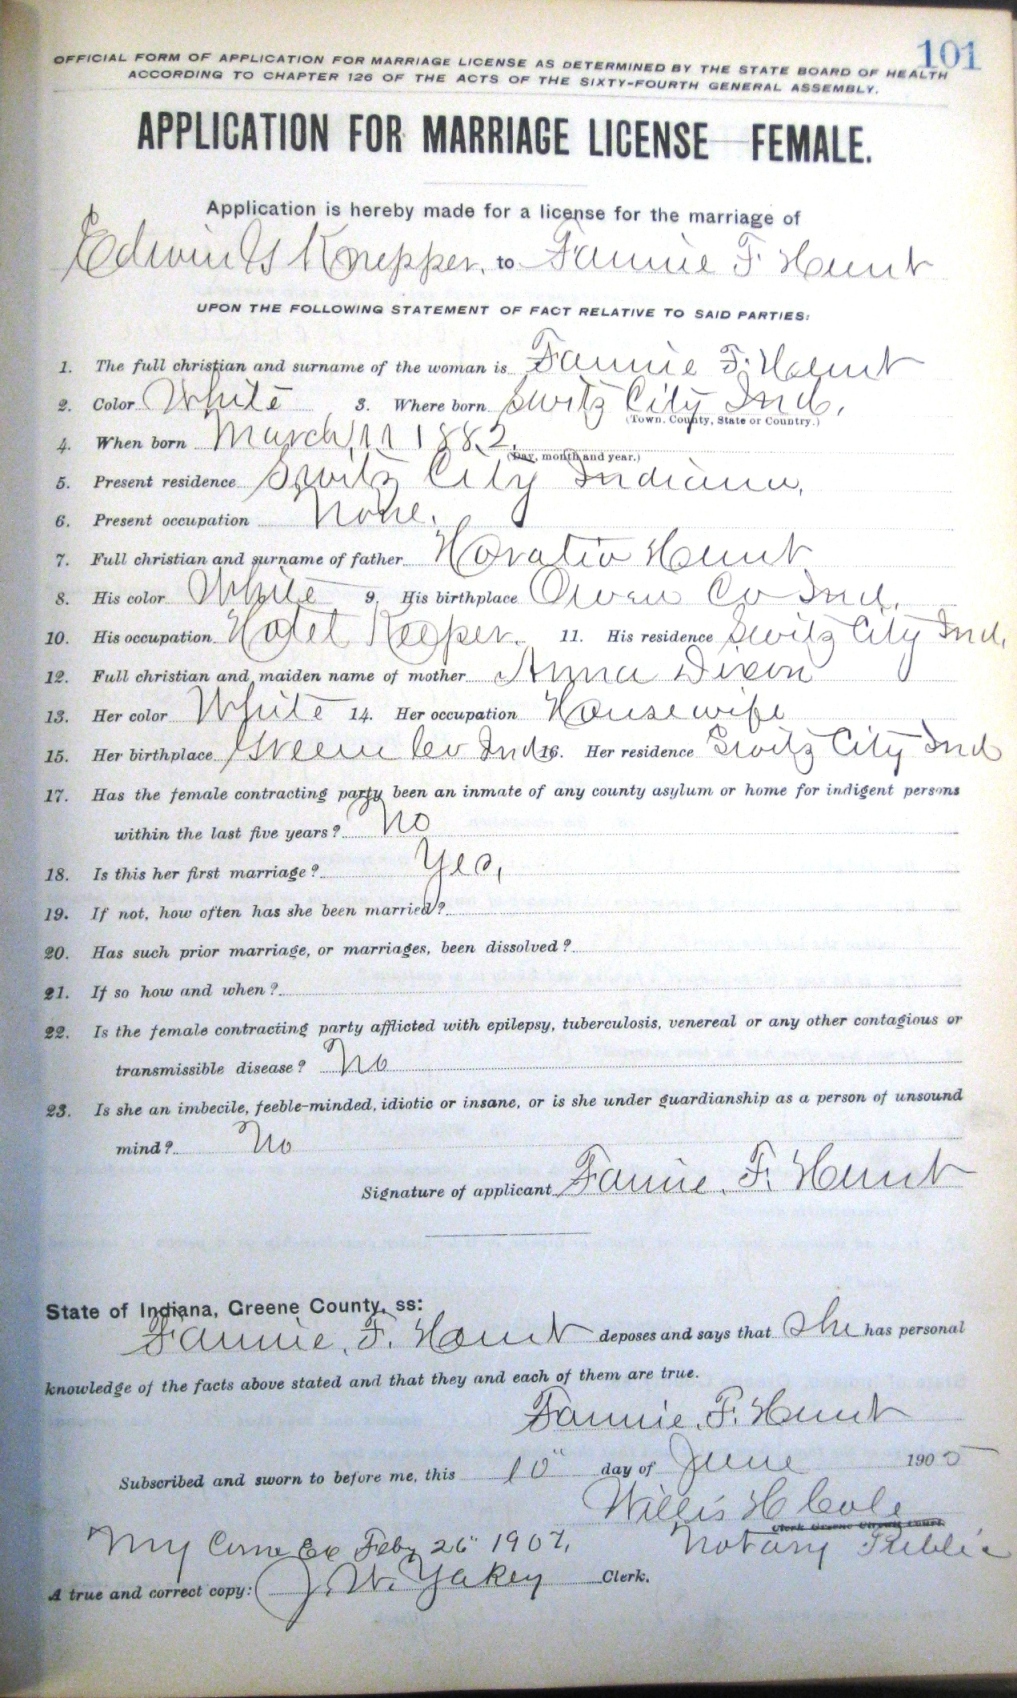 101
OFFICIAL FORM OF APPLICATION FOR MARRIAGE LICENSE AS DETERMINED BY THE STATE BOARD OF HEALTH
ACCORDING TO CHAPTER 126 OF THE ACTS OF THE SIXTY-FOURTH GENERAL ASSEMBLY.
APPLICATION FOR MARRIAGE LICENSE—FEMALE.
Application is hereby made for a license for the marriage of
Edwin G Knepper, to Fannie F Hunt
UPON THE FOLLOWING STATEMENT OF FACT RELATIVE TO SAID PARTIES:
1. The full christian and surname of the woman is Fannie F. Hunt
2. Color White 3. Where born Switz City Ind,
(Town, County, State or Country.)
4. When born March 11 1882.
(Day, month and year.)
5. Present residence Switz City Indiana,
6. Present occupation None.
7. Full christian and surname of father Horatio Hunt
8. His color White 9. His birthplace Owen Co Ind.
10. His occupation Hotel Keeper. 11. His residence Switz City Ind,
12. Full christian and maiden name of mother Anna Dixon
13. Her color White 14. Her occupation Housewife
15. Her birthplace Green Co Ind 16. Her residence Switz City Ind
17. Has the female contracting party been an inmate of any county asylum or home for indigent persons
within the last five years? No
18. Is this her first marriage? Yes,
19. If not, how often has she been married?
20. Has such prior marriage, or marriages, been dissolved?
21. If so how and when?
22. Is the female contracting party afflicted with epilepsy, tuberculosis, venereal or any other contagious or
transmissible disease? No
23. Is she an imbecile, feeble-minded, idiotic or insane, or is she under guardianship as a person of unsound
mind? No
Signature of applicant Fannie. F. Hunt
State of Indiana, Greene County, ss:
Fannie. F. Hunt deposes and says that she has personal
knowledge of the facts above stated and that they and each of them are true.
Fannie. F. Hunt
Subscribed and sworn to before me, this 10" day of June 1905
Willis H Cole
Clerk Greene Circuit Court.
My Com Ex Feby 26" 1907, Notary Public
A true and correct copy: J. W. Yakey Clerk.